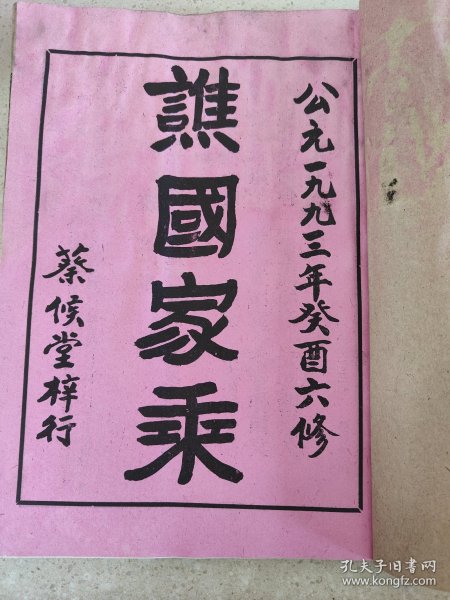 公元一九九三年癸酉六修
譙國家乘
蔡候堂梓行
孔夫子旧书网
www.kongfz.com